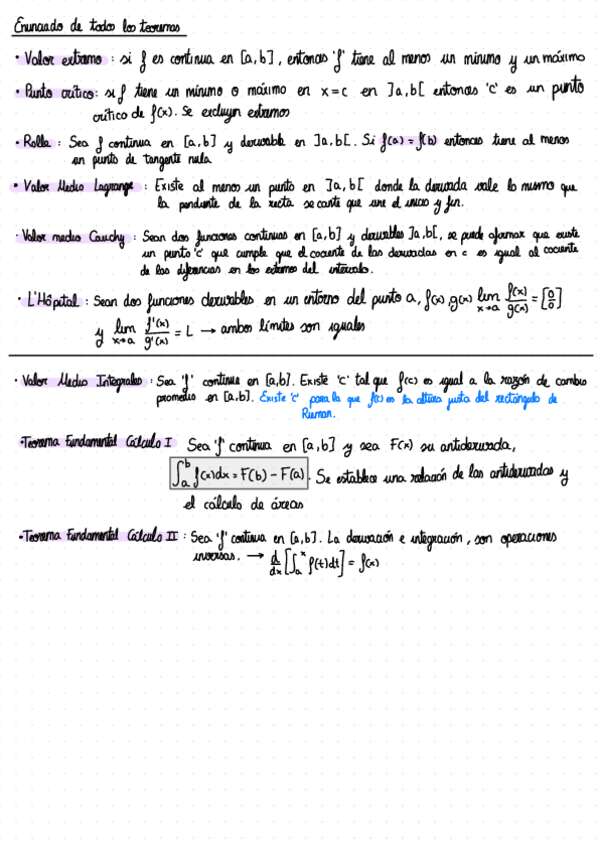 Enunciado de todos los teoremas
• Valor extremo : si f es continua en [a,b], entonces 'f' tiene al menos un mínimo y un máximo
• Punto crítico: si f tiene un mínimo o máximo en x=c en ]a,b[ entonces 'c' es un punto
crítico de f(x). Se excluyen extremos
• Rolle : Sea f continua en [a,b] y derivable en ]a,b[. Si f(a) = f(b) entonces tiene al menos
un punto de tangente nula.
• Valor Medio Lagrange : Existe al menos un punto en ]a,b[ donde la derivada vale lo mismo que
la pendiente de la recta secante que une el inicio y fin.
• Valor medio Cauchy : Sean dos funciones continuas en [a,b] y derivables ]a,b[, se puede afirmar que existe
un punto 'c' que cumple que el cociente de las derivadas en c es igual al cociente
de las diferencias en los extremos del intervalo.
• L'Hôpital : Sean dos funciones derivables en un entorno del punto a, f(x), g(x) lim x→a f(x)/g(x) = [0/0]
y lim x→a f'(x)/g'(x) = L → ambos límites son iguales
• Valor Medio Integrales : Sea 'f' continua en [a,b]. Existe 'c' tal que f(c) es igual a la razón de cambio
promedio en [a,b]. Existe 'c' para la que f(c) es la altura justa del rectángulo de
Rieman.
• Teorema Fundamental Cálculo I Sea 'f' continua en [a,b] y sea F(x) su antiderivada,
∫_a^b f(x)dx = F(b) - F(a) . Se establece una relación de las antiderivadas y
el cálculo de áreas
• Teorema Fundamental Cálculo II : Sea 'f' continua en [a,b]. La derivación e integración, son operaciones
inversas. → d/dx [∫_a^x f(t)dt] = f(x)